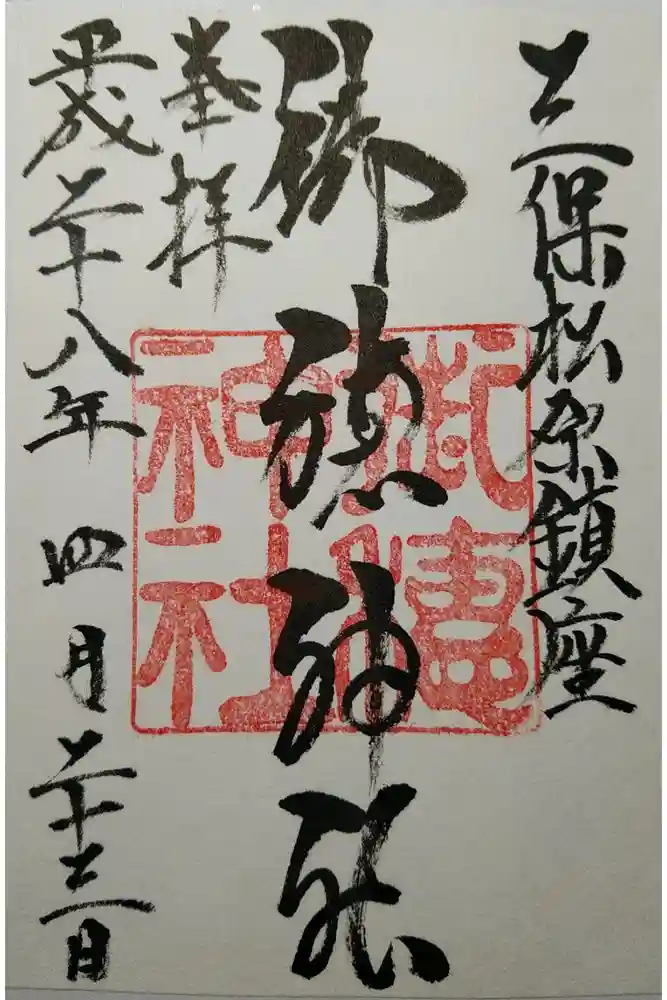 三保松原鎮座
御穗神社
奉拝
平成二十八年四月二十三日
御穗神社